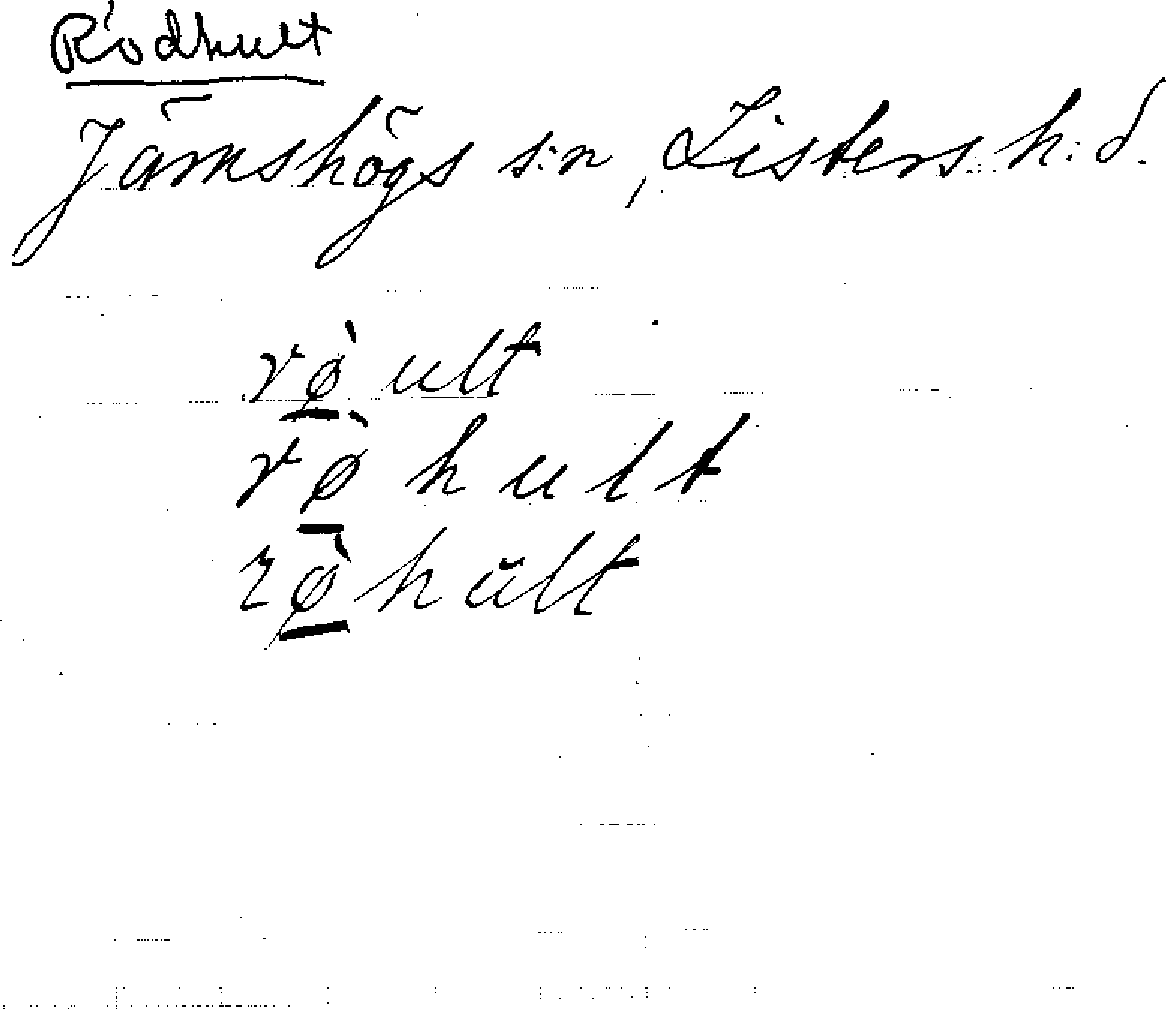 Rödhult
Jämshögs s:n, Listers h:d.
rø̀ult
rø̀hult
rø̀hŭlt